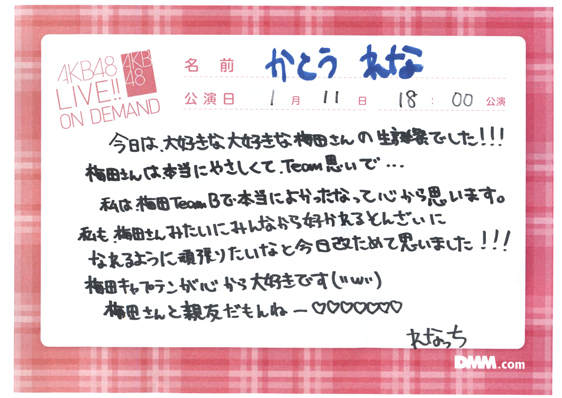 AKB48
LIVE!!
ON DEMAND
AKB
48
名前 かとう れな
公演日 1月 11日 18:00 公演
今日は、大好きな大好きな梅田さんの生誕祭でした!!!
梅田さんは本当にやさしくて、Team思いで...
私は、梅田TeamBで本当によかったなって心から思います。
私も、梅田さんみたいにみんなから好かれるそんざいに
なれるように頑張りたいなと今日改ためて思いました!!!
梅田キャプテンが心から大好きです(''w'')
梅田さんと親友だもんねー♡♡♡♡♡♡♡
れなっち
DMM.com